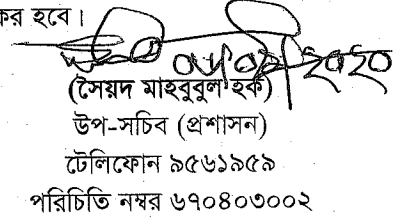 কর হবে।
(সৈয়দ মাহবুবুল হক)
উপ-সচিব (প্রশাসন)
টেলিফোন ৯৫৬১৯৫৯
পরিচিতি নম্বর ৬৭০৪০৩০০২